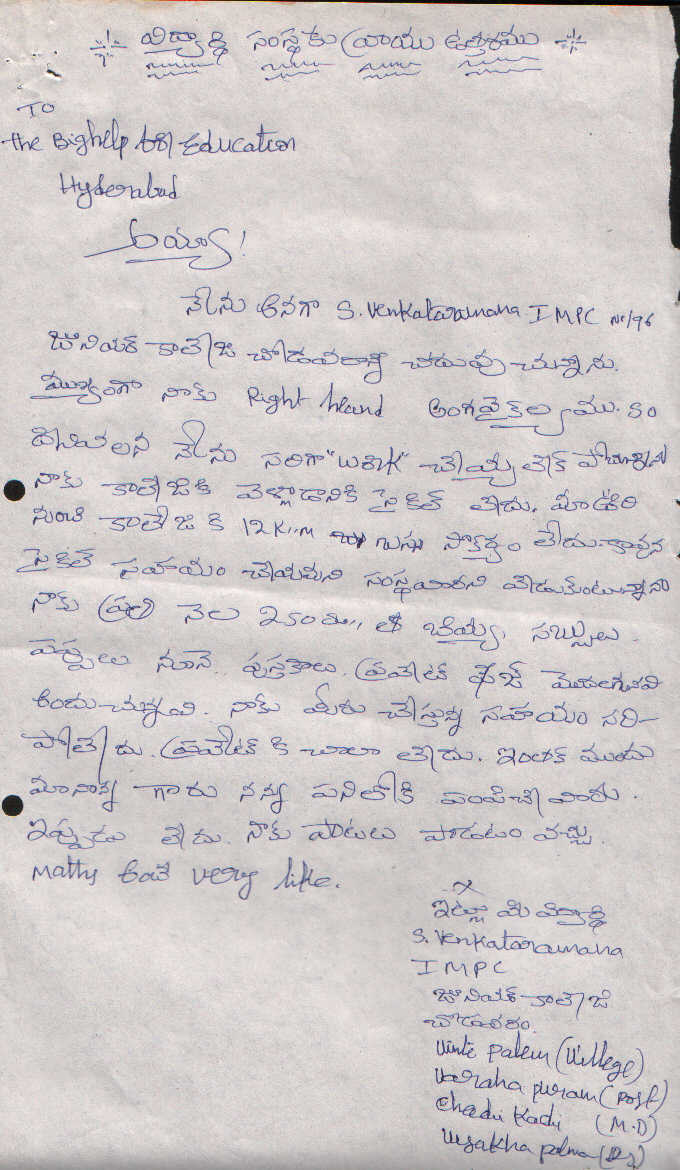 విద్యార్థి సంస్థకు వ్రాయు ఉత్తరము
TO
the Bighelp for Education
Hyderabad
అయ్యా!
నేను అనగా S. Venkataramana I MPC No/96
జూనియర్ కాలేజి చోడవరాన్ని చదువు చున్నాను.
ముఖ్యంగా నాకు Right hand అంగవైకల్యము. 50
దీనివలన నేను సరిగా "work" చేయ్య లేక పోచున్నాను
నాకు కాలేజికి వెళ్లాడానికి సైకిల్ లేదు. మాఊరి
నుంచి కాలేజి కి 12K.M బస్సు సౌకర్యం లేదు. కావున
సైకిల్ సహాయం చేయమని సంస్థవారిని వేడుకుంటున్నాను
నాకు ప్రతి నెల 250రూ,, లో బియ్యం, సబ్బులు.
పప్పులు నూనె. పుస్తకాలు. ప్రవేట్ ఫీజ్ మొదలగునవి
అందుచున్నవి. నాకు మీరు చేస్తున్న సహాయం సరి-
పోతలేదు. ప్రవేట్ కి చాలా లేదు. ఇంతక్ ముందు
మానాన్న గారు నన్ను పనిలోకి పంపించే వారు.
ఇప్పుడు లేదు. నాకు పాటలు పాడటం వచ్చు.
Maths అంటే very like.
ఇట్లు మీ విద్యార్థి
S. Venkataramana
I MPC
జూనియర్ కాలేజి
చోడవరం.
Vinte palem (Village)
Varaha puram (Post)
Chadi kadi (M.D)
Visakha patnam (Ds)